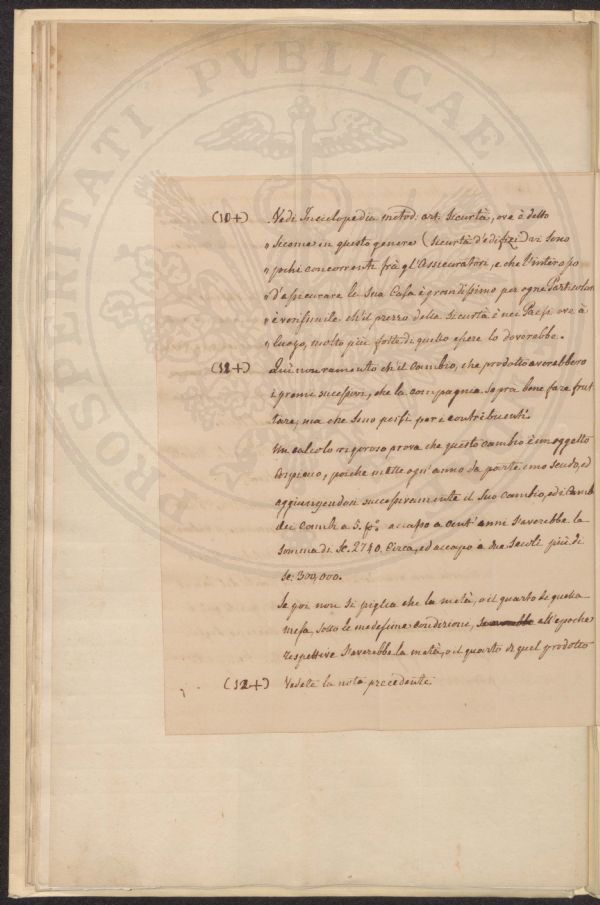 PROSPERITATI PVBLICAE
(10+) Vedi Inciclopedia metod: art: Sicurtà, ove è detto
„ Siccome in questo genere (Sicurtà d'edifizi) vi sono
„ pochi concorrenti frà gl'Assicuratori, e che l'interesso
„ d'assicurare la sua Casa è grandissimo per ogni Particolar
„ è verisimile ch'il prezzo della Sicurtà è nei Paesi ove à
„ luogo, molto più forte di quello essere lo doverebbe.
(11+) Quì non ramento ch'il Cambio, che prodotto averebbero
i premi successivi, che la compagnia saprà bene fare frut
tare; ma che sono persi per i contribuenti.
Un calcolo rigoroso prova che questo cambio è un oggetto
Cospicuo, poiche mette ogn'anno da parte uno Scudo, ed
aggiungendosi successivamente il suo Cambio, ed i Camb
dei Cambi a 5. p% accapo a cent'anni s'averebbe la
somma di Sc. 2740. Circa, ed accapo a due Secoli più di
Sc: 300,000.
Se poi non si piglia che la metà, o il quarto di quella
messa, sotto le medesime condizioni, all'epoche
respettive s'averebbe la metà, o il quarto di quel prodotto
(12+) Vedete la nota precedente.